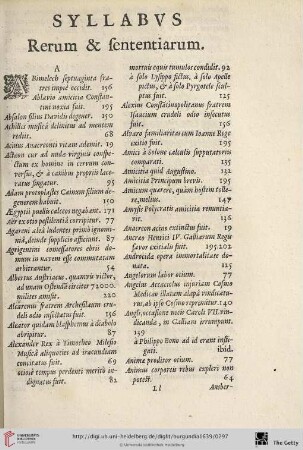 SYLLABVS
Rerum & sententiarum.
A
ABimelech septuaginta fratres impiè occidit. 156
Ablavio amicitia Constantini noxia fuit. 195
Absalon filius Davidis degener. 150
Achillis musicâ delinitus ad mentem rediit. 68
Acinus Anacreonti vitam ademit. 19
Actæon cur ad nudæ virginis conspectum ex homine in cervum conversus, & à canibus propriis laceratus fingatur. 95
Adam protoplastes Cainum filium degenerem habuit. 150
Ægyptii puellis calceos negabant. 171
Aër ex otio pestilentiâ corripitur. 77
Agrareni aleâ ludentes primò ignominiâ, deinde supplicio afficiunt. 87
Agrigentini adolescentes ebrii domum in navem esse commutatam arbitrantur. 54
Albertus Austriacus, quamvis victor, ad unam Ostendâ citiùs 72000. milites amisit. 220
Alcæonis fratrem Archesilaum crudeli odio insectatus fuit. 156
Aleator quidam blasphemus à diabolo abripitur. 87
Alexander Rex à Timotheo Milesio Musicâ aliquoties ad iracundiam concitatus fuit. 69
otiosè tempus perdenti meritò indignatus fuit. 82
mortuis equis tumulos condidit. 92
à solo Lysippo fictus, à solo Apelle pictus, & à solo Pyrgotele sculptus fuit. 125
Alexius Constantinopolitanus fratrem Isaacium crudeli odio insecutus fuit. 156
Alvaro familiaritas cum Ioanne Rege exitio fuit. 195
Amici à Solone calculis supputatoriis comparati. 135
Amicitia quid Augustino. 132
Amicitia Principum brevis. 195
Amicum quærere, quàm hostem tollere, melius. 147
Amysis Polycratis amicitiæ renuntiavit. 136
Anacreon acino extinctus fuit. 19
Ancræo Henrici IV. Galliarum Regis favor exitiali fuit. 195.202
Andrœcida opera immortalitate donata. 125
Angelorum labor otium. 77
Angelus Attaculus injuriam Cosmæ Medicæ illatam alapâ vindicaturus, ab ipso Cosmo reprobatur. 140
Angli, occasione necis Caroli VII. vindicandæ, in Galliam irrumpunt. 139
à Philippo Bono ad id erant instigati. ibid.
Animæ proditor otium. 77
Animus corporeis rebus expleri non potest. 64
Ll
Amber-
http://digi.ub.uni-heidelberg.de/diglit/burgundia1639/0297
© Universitätsbibliothek Heidelberg
The Getty